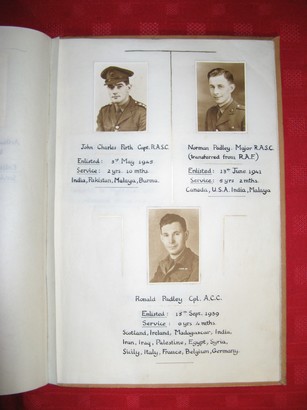 John Charles Perth Capt. R.A.S.C.
Enlisted : 8th May 1945
Service : 2 yrs. 10 mths.
India, Pakistan, Malaya, Burma.
Norman Padley. Major R.A.S.C.
(transferred from R.A.F.)
Enlisted : 13th June 1941
Service : 5 yrs 2 mths.
Canada, U.S.A. India, Malaya
Ronald Padley Cpl. A.C.C.
Enlisted : 15th Sept. 1939
Service : 6 yrs 4 mths.
Scotland, Ireland, Madagascar, India.
Iran, Iraq, Palestine, Egypt, Syria.
Sicily, Italy, France, Belgium, Germany.